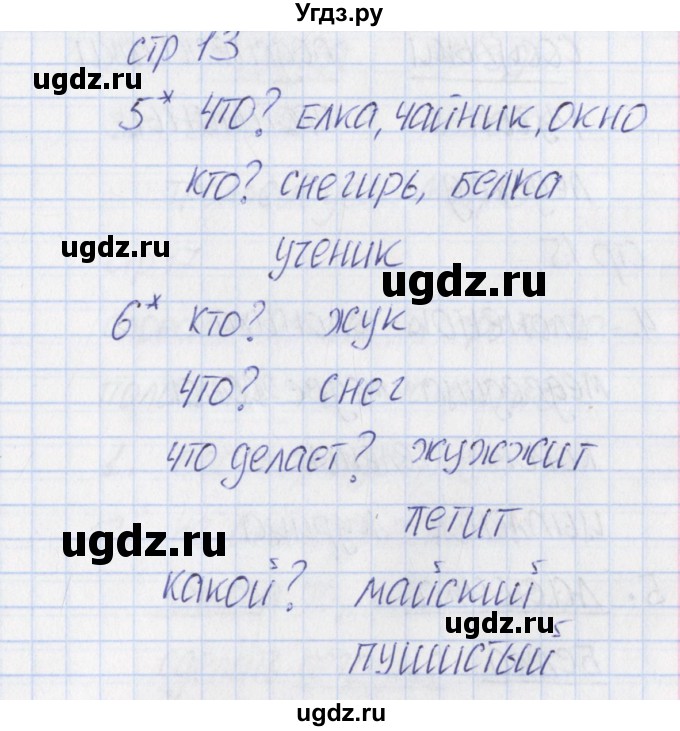 Угдз.ру
стр 13
ugdz.ru
5* что? елка, чайник, окно
кто? снегирь, белка
ugdz.ru
ученик
ugdz.ru
6* кто? жук
что? снег
что делает? жужжит
летит
ugdz.ru
какой? майский
ugdz.ru
пушистый
ugdz.ru